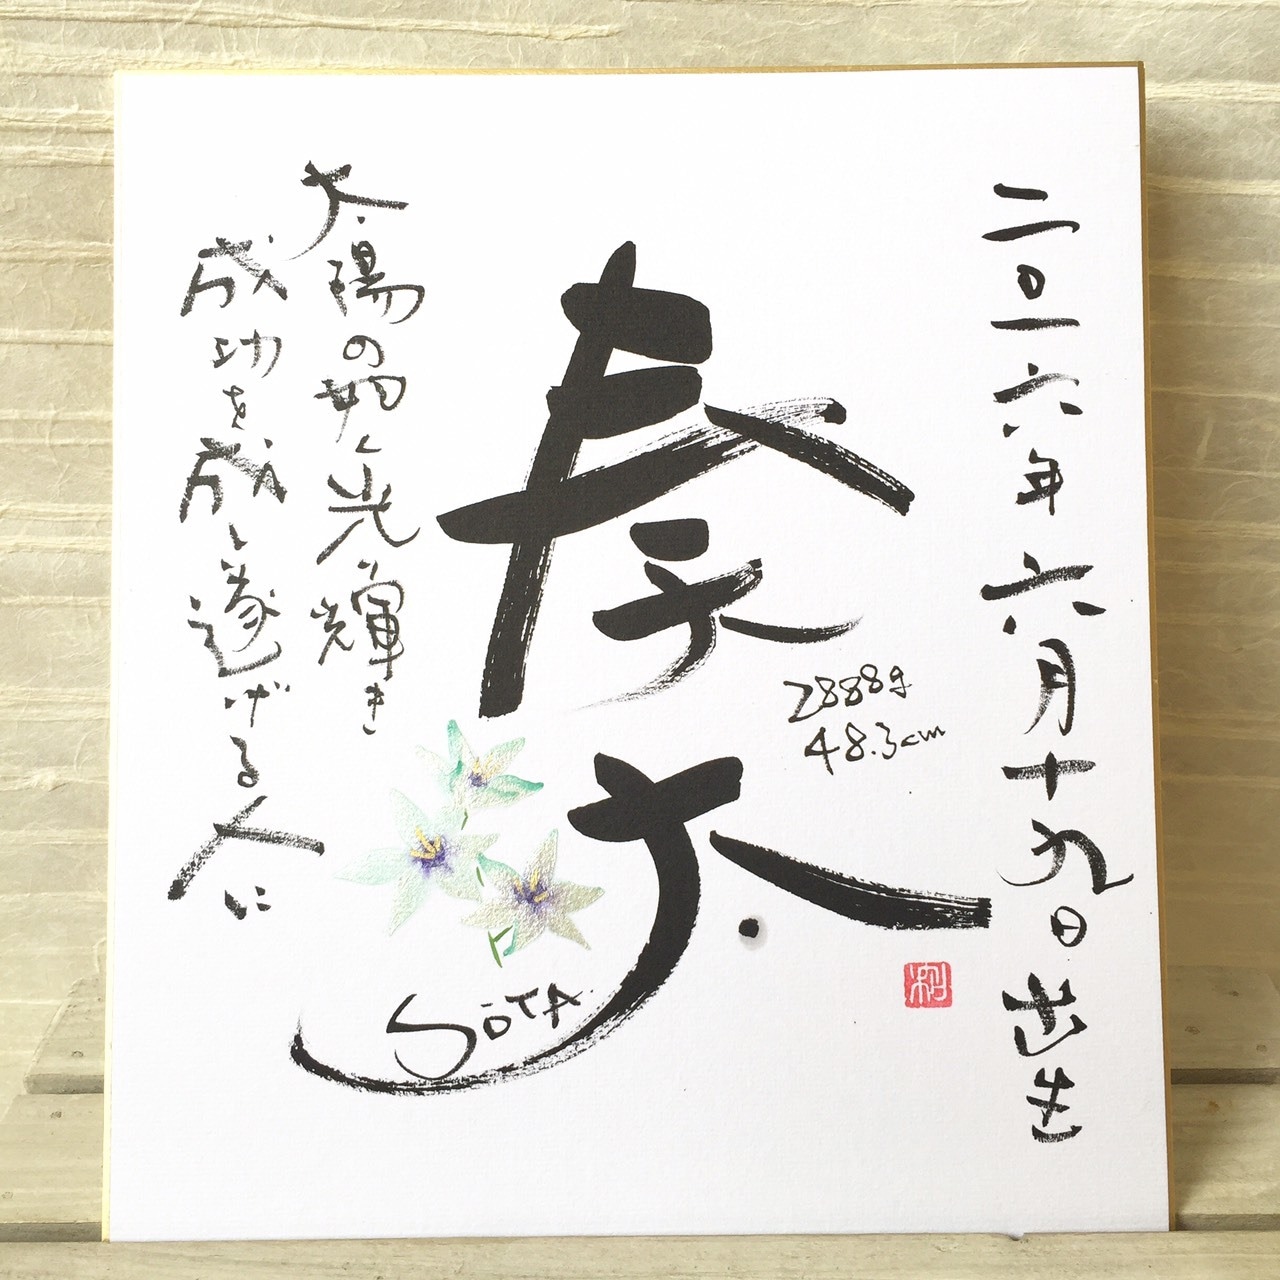 二〇一六年六月十九日出生
奏太
2888g
48.3cm
太陽の如く光り輝き
成功を成し遂げる人に
SŌTA